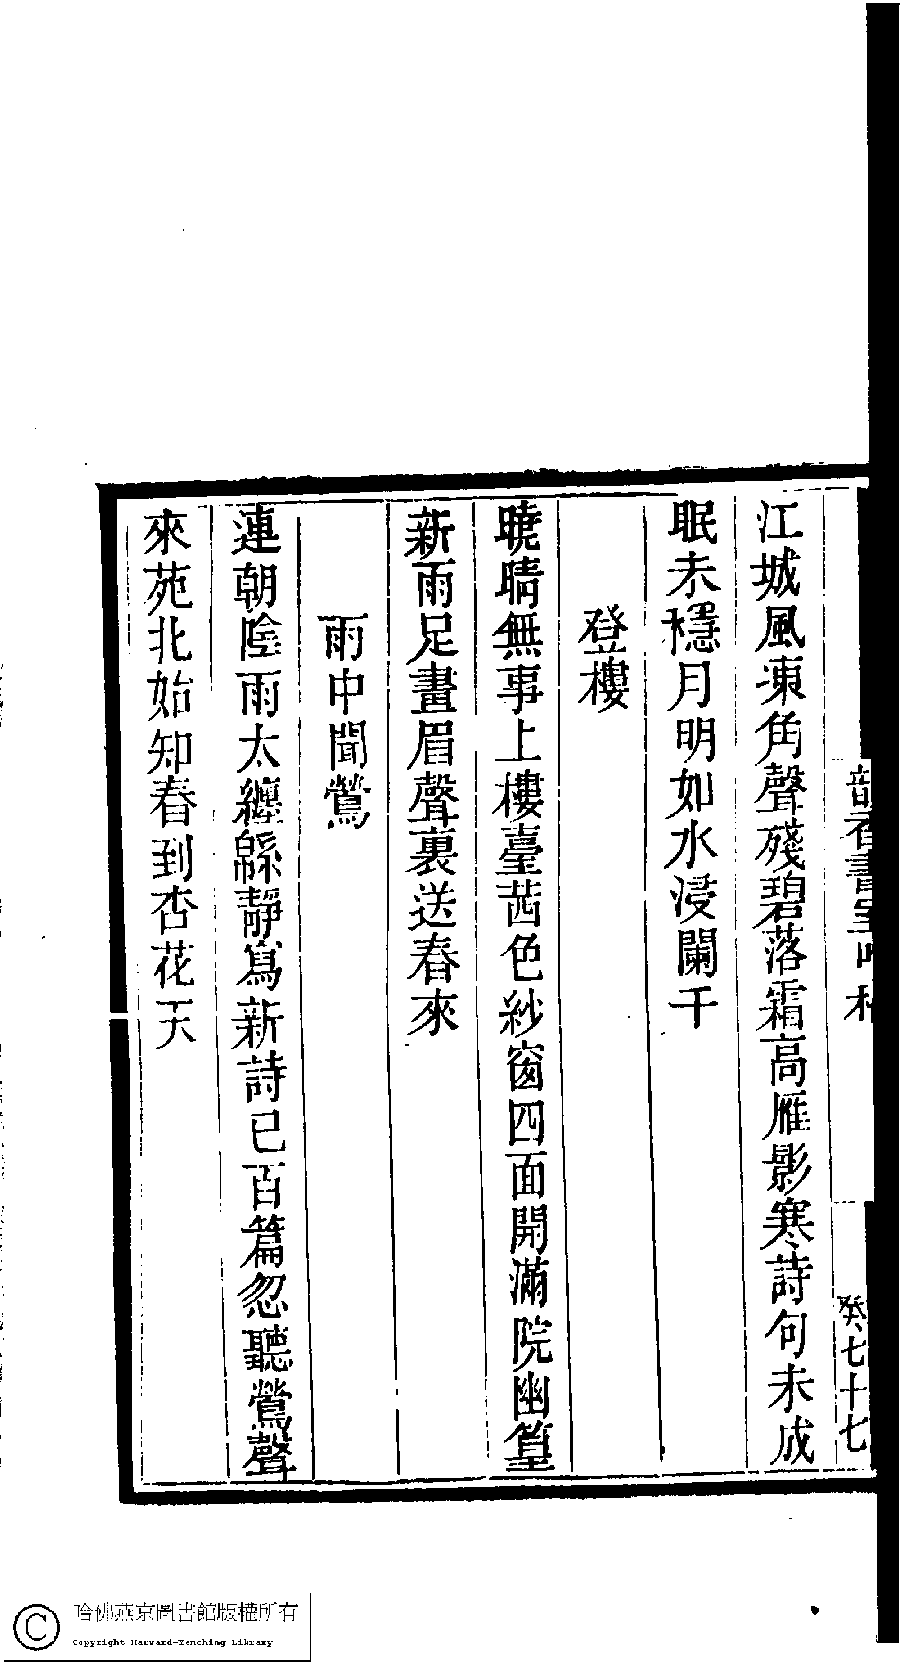 韻香書室吟稿
癸七十七
江城風凍角聲殘碧落霜高雁影寒詩句未成
眠未穩月明如水浸闌干
登樓
曉晴無事上樓臺茜色紗窗四面開滿院幽篁
新雨足畫眉聲裏送春來
雨中聞鶯
連朝陰雨太纏緜靜寫新詩已百篇忽聽鶯聲
來苑北始知春到杏花天
哈佛燕京圖書館版權所有
Copyright Harvard-Yenching Library